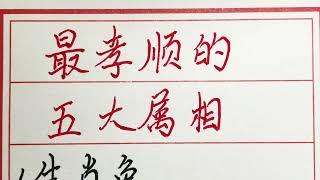 最孝顺的
五大属相
生肖兔